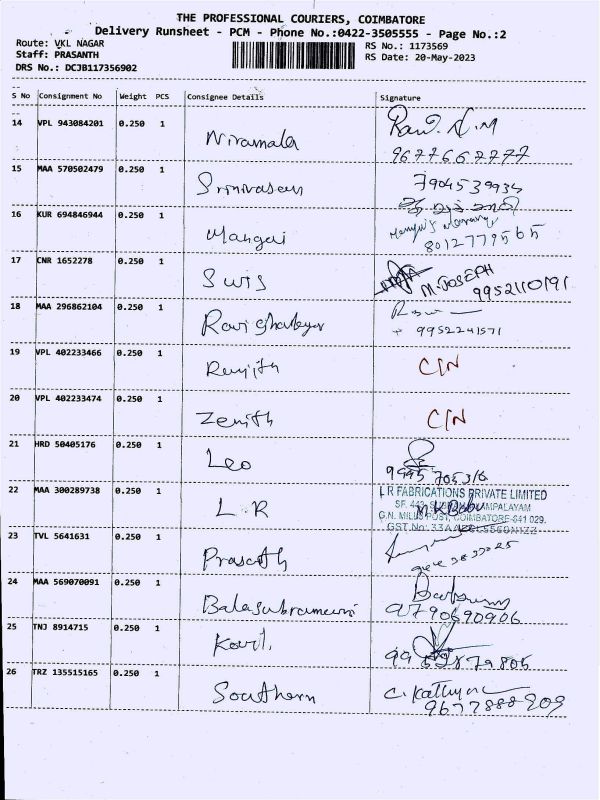 THE PROFESSIONAL COURIERS, COIMBATORE
Delivery Runsheet - PCM - Phone No.:0422-3505555 - Page No.:2
Route: VKL NAGAR
RS No.: 1173569
Staff: PRASANTH
RS Date: 20-May-2023
DRS No.: DCJB117356902
S No Consignment No Weight PCS Consignee Details Signature
14 VPL 943084201 0.250 1 Niramala
9677667777
15 MAA 570502479 0.250 1 Srinivasan 7904539934
16 KUR 694846944 0.250 1 Mangai
8012779565
17 CNR 1652278 0.250 1 Swis M. JOSEPH
9952110191
18 MAA 296862104 0.250 1
9952241571
19 VPL 402233466 0.250 1 Renjith C/N
20 VPL 402233474 0.250 1 Zenith C/N
21 HRD 50405176 0.250 1 Leo
9995705316
22 MAA 300289738 0.250 1 L R L R FABRICATIONS PRIVATE LIMITED
COIMBATORE-641 029.
GST.No: 
23 TVL 5641631 0.250 1 Prasath
24 MAA 569070091 0.250 1 Balasubramani
9790690906
25 TNJ 8914715 0.250 1
26 TRZ 135515165 0.250 1 Southern
9677888909